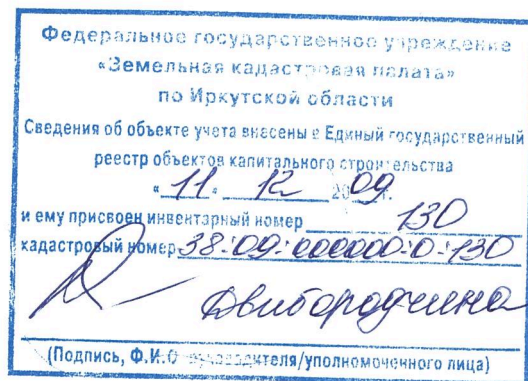 Федеральное государственное учреждение
«Земельная кадастровая палата»
по Иркутской области
Сведения об объекте учета внесены в Единый государственный
реестр объектов капитального строительства
« 11 » 12 2009 г.
и ему присвоен инвентарный номер 130
кадастровый номер 38:09:000000:0:130
(Подпись, Ф.И.О руководителя/уполномоченного лица)